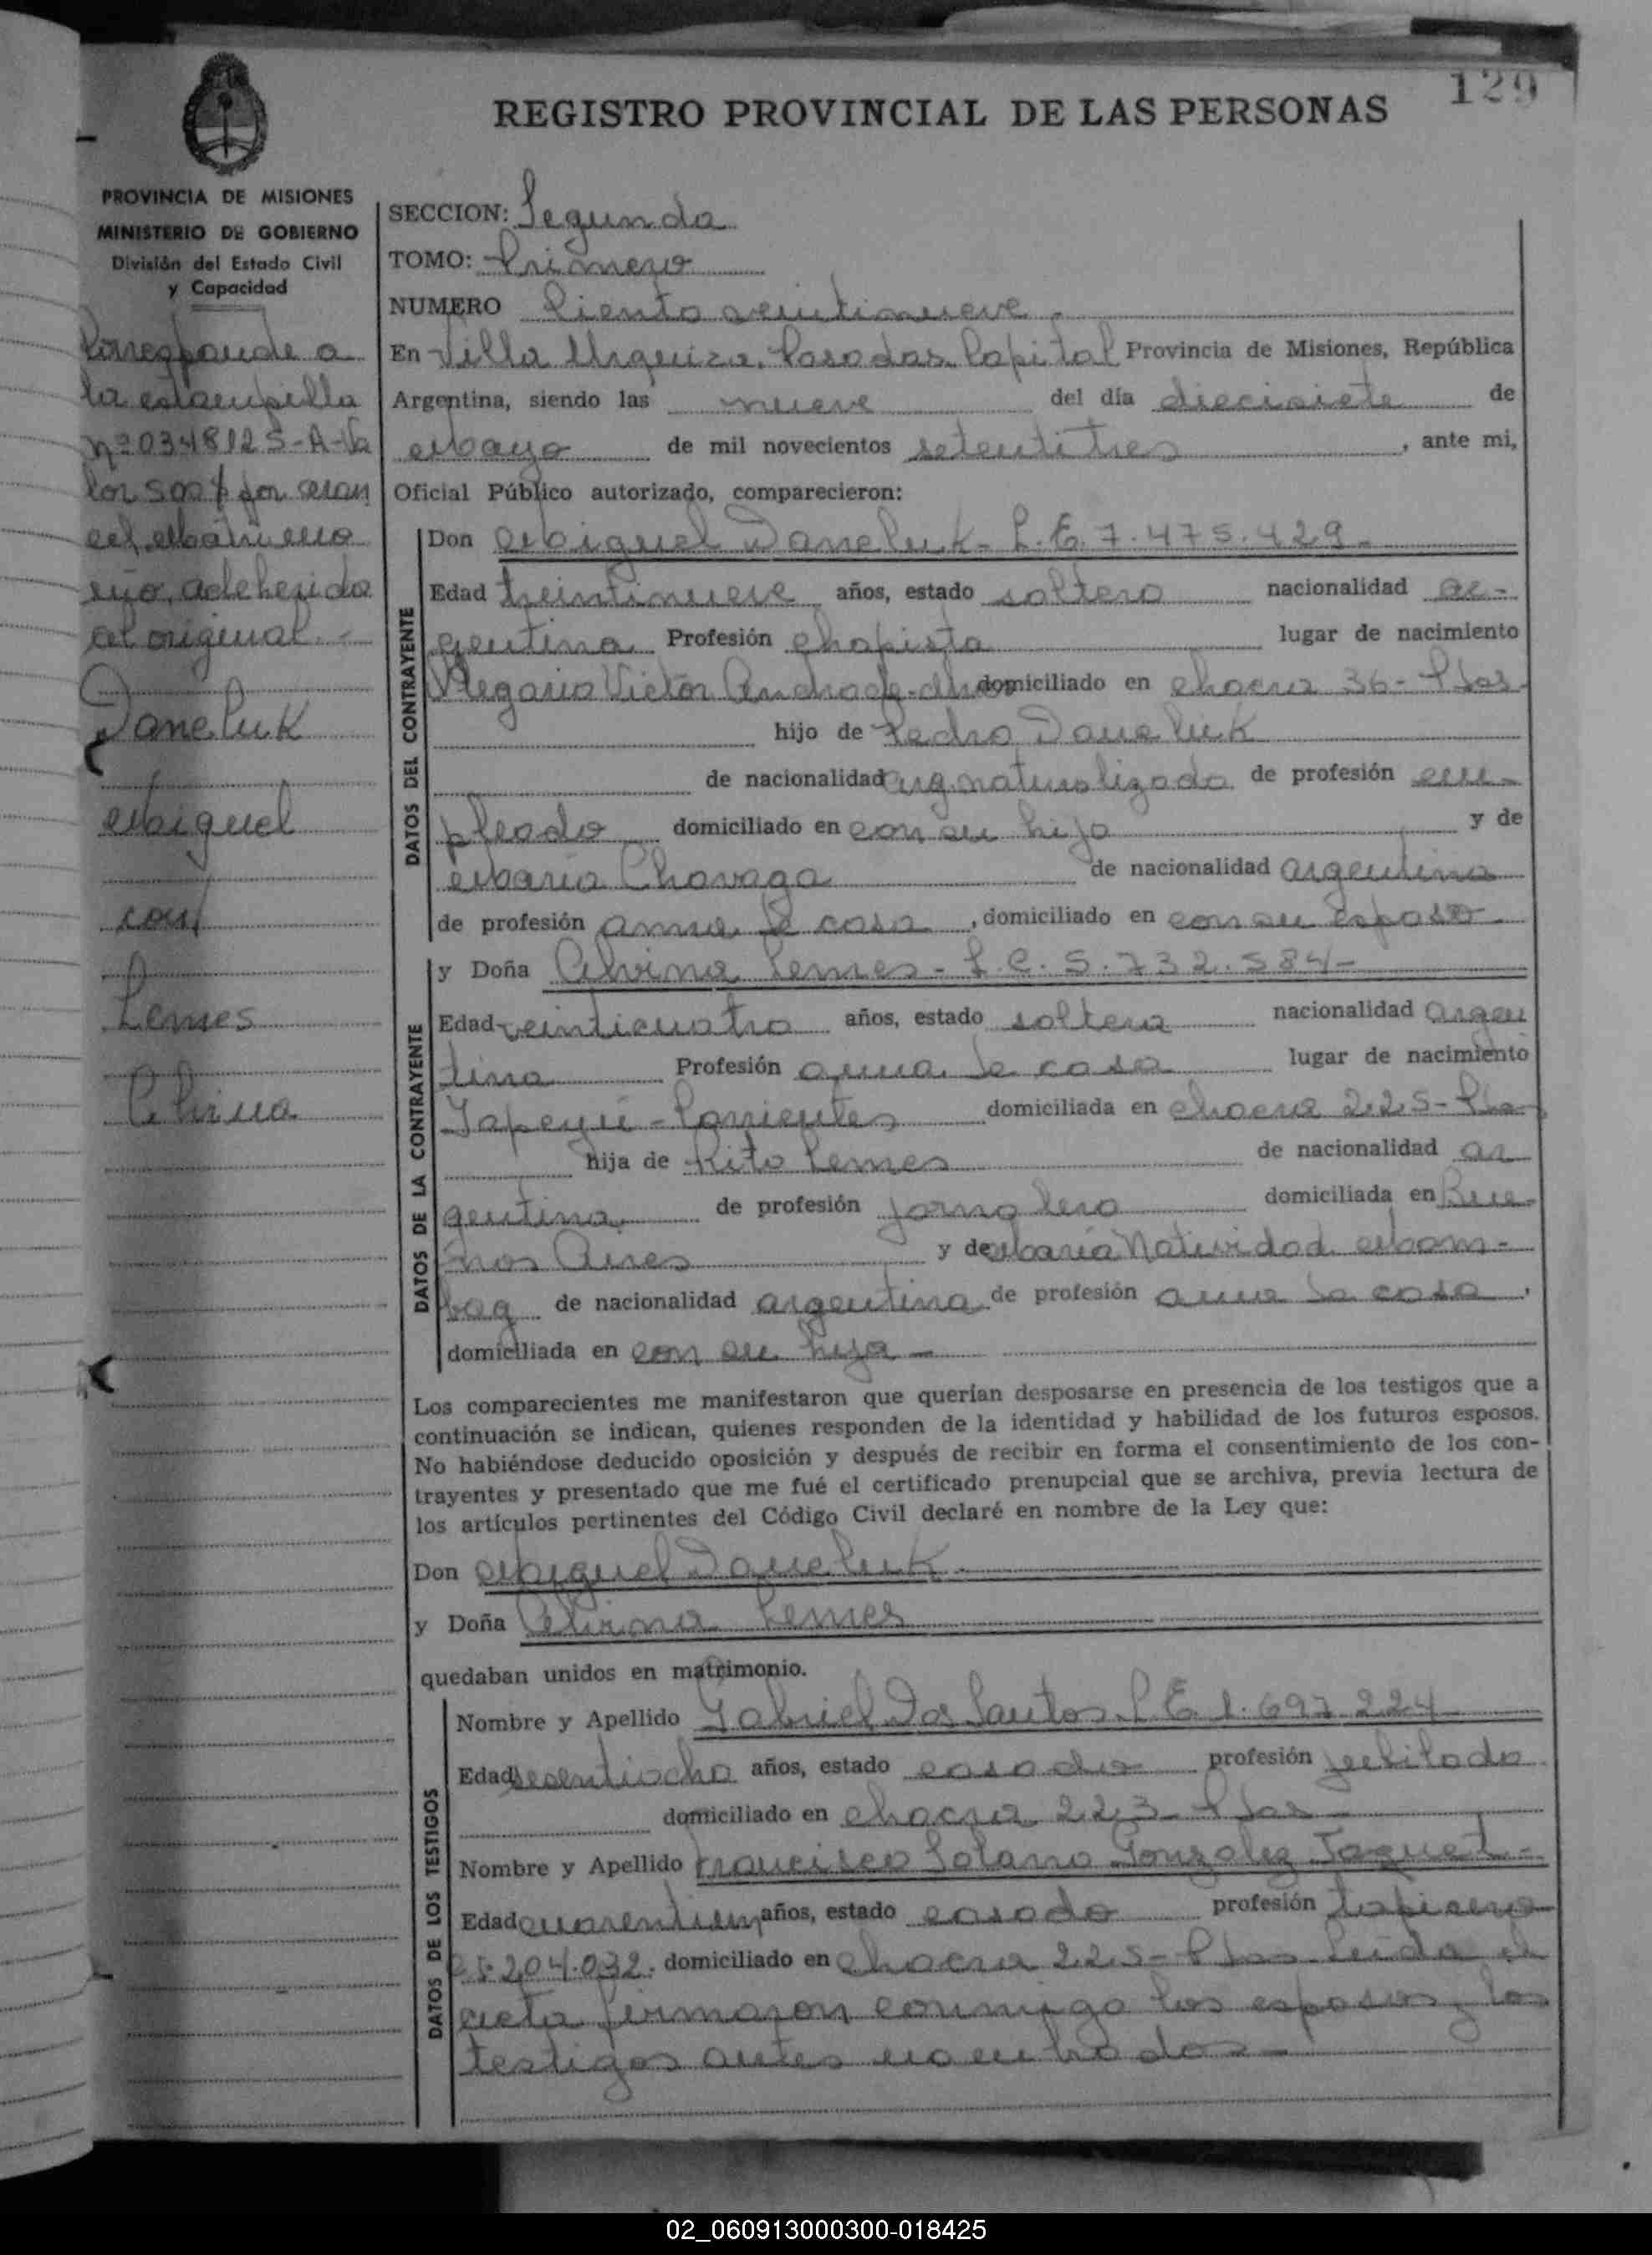 129
REGISTRO PROVINCIAL DE LAS PERSONAS
PROVINCIA DE MISIONES
MINISTERIO DE GOBIERNO
División del Estado Civil
y Capacidad
Corresponde a
la estampilla
nº 0348125-A-Va
lor 500 $ por aran
cel Matrimo
nio, adeherida
al original.-
Daneluk
Miguel
con
Lemes
Alvina
SECCION: Segunda
TOMO: Primero
NUMERO Ciento veintinueve.
En Villa Urquiza, Posadas, Capital Provincia de Misiones, República
Argentina, siendo las nueve del día diecisiete de
Mayo de mil novecientos setentitres, ante mi,
Oficial Público autorizado, comparecieron:
DATOS DEL CONTRAYENTE
Don Miguel Daneluk- L.E. 7.475.429-
Edad treintinueve años, estado soltero nacionalidad ar-
gentina Profesión chapista lugar de nacimiento
Olegario Victor Andrade- domiciliado en chacra 36- Pdas-
hijo de Pedro Daneluk
de nacionalidad arg. naturalizado de profesión em-
pleado domiciliado en con su hijo y de
María Chovaga de nacionalidad argentina
de profesión ama de casa, domiciliado en con su esposo
DATOS DE LA CONTRAYENTE
y Doña Alvina Lemes- L.C. 5.732.584-
Edad veinticuatro años, estado soltera nacionalidad argen
tina Profesión ama de casa lugar de nacimiento
Yapeyú - Corrientes domiciliada en chacra 225-
hija de Rito Lemes de nacionalidad ar
gentina de profesión jornalero domiciliada en Bue-
nos Aires y de María Natividad Mom-
baq de nacionalidad argentina de profesión ama de casa,
domiciliada en con su hija -
Los comparecientes me manifestaron que querían desposarse en presencia de los testigos que a
continuación se indican, quienes responden de la identidad y habilidad de los futuros esposos.
No habiéndose deducido oposición y después de recibir en forma el consentimiento de los con-
trayentes y presentado que me fué el certificado prenupcial que se archiva, previa lectura de
los artículos pertinentes del Código Civil declaré en nombre de la Ley que:
Don Miguel Daneluk-
y Doña Alvina Lemes
quedaban unidos en matrimonio.
DATOS DE LOS TESTIGOS
Nombre y Apellido Gabriel Dos Santos. L.E. 1.697.224
Edad sesentiocho años, estado casado profesión jubilado
domiciliado en chacra 223- Pdas-
Nombre y Apellido Francisco Solano Gonzalez Jaquet-
Edad cuarentiun años, estado casado profesión tapicero
204.032. domiciliado en chacra 225- Pdas Leida el
acta firmaron conmigo los esposos y los
testigos antes nombrados-
02_060913000300-018425